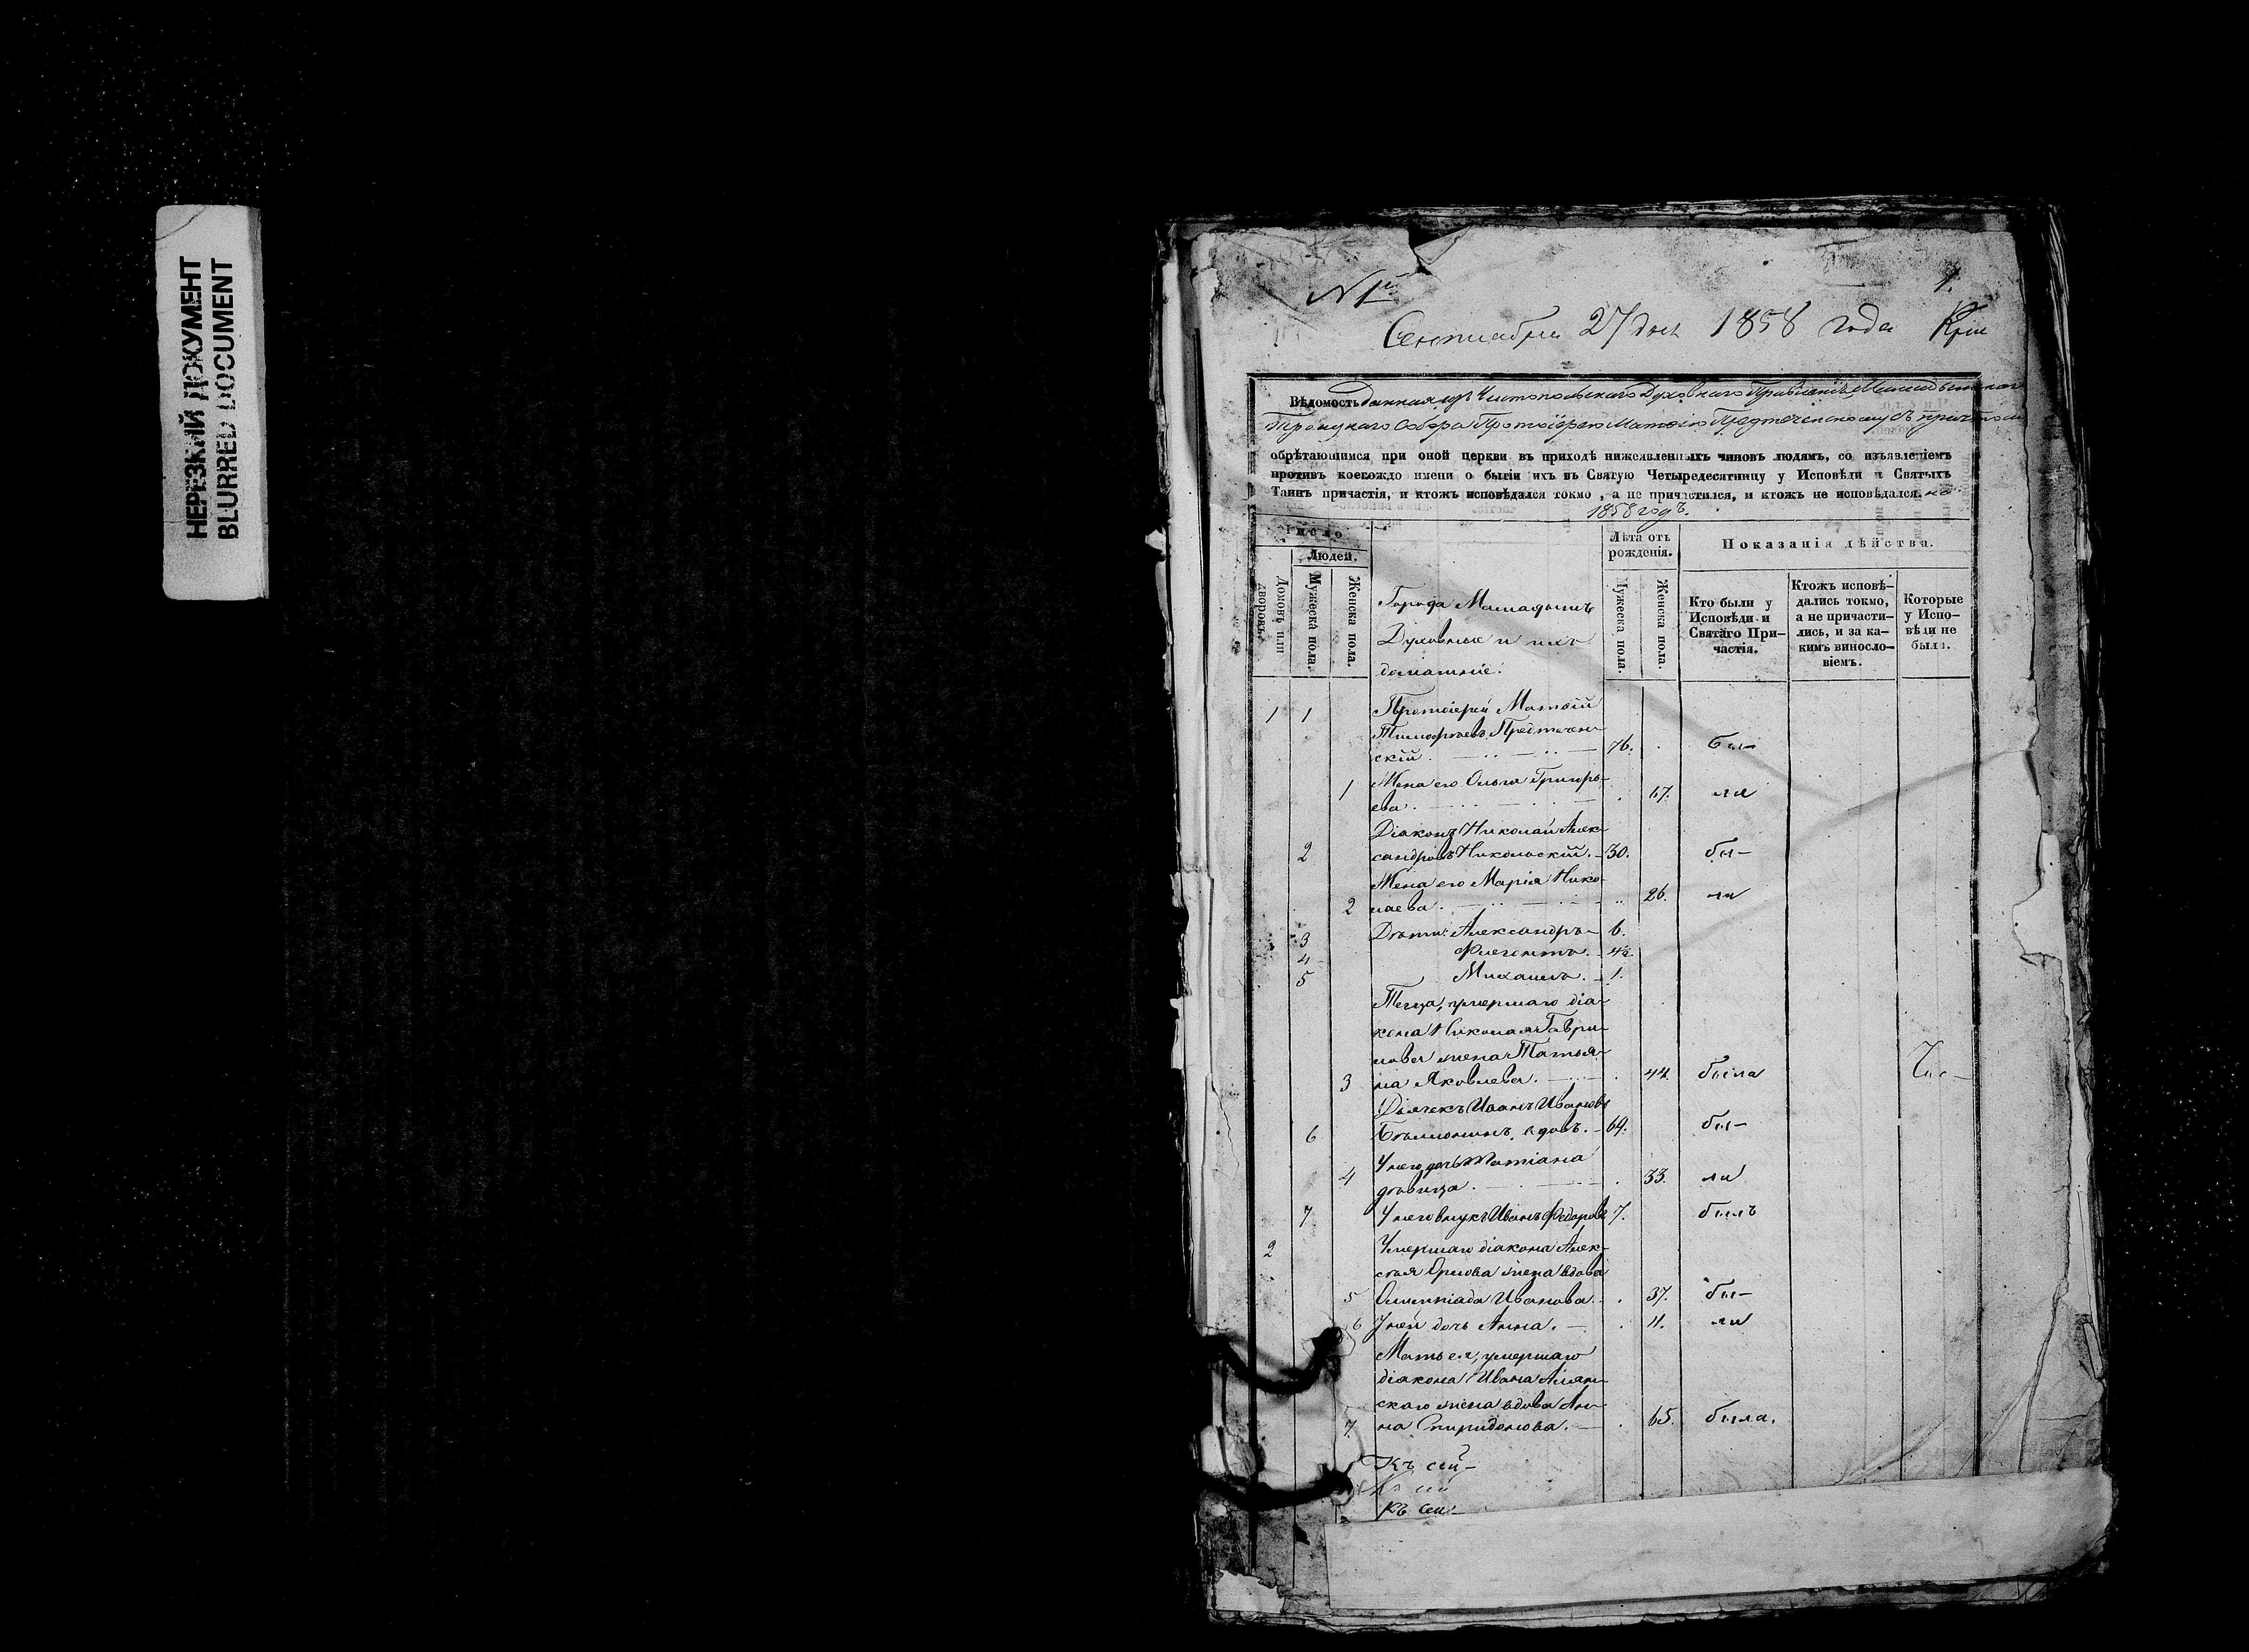 НЕРЕЗКИЙ ДОКУМЕНТ
BLURRED DOCUMENT
N 1й
1.
Сентября 27 дня 1858 года
Вѣдомость данная изъ Чистопольскаго Духовнаго Правленія Мамадышскаго
Троицкаго Собора Протоіерею Матѳію Предтеченскому съ причтомъ
обрѣтающимся при оной церкви въ приходѣ нижеявленныхъ чиновъ людямъ, со изъявленіемъ
противъ коегождо имени о бытіи ихъ въ Святую Четыредесятницу у Исповѣди и Святыхъ
Таинъ причастія, и ктожъ исповѣдался токмо, а не причастился, и ктожъ не исповѣдался. на
1858 годъ.
Число
Людей.
Домовъ или дворовъ.
Мужеска пола.
Женска пола.
Города Мамадыша
Духовные и ихъ
домашніе.
Лѣта отъ
рожденія.
Мужеска пола.
Женска пола.
Показанія дѣйства.
Кто были у
Исповѣди и
Святаго При-
частія.
Ктожъ исповѣ-
дались токмо,
а не причасти-
лись, и за ка-
кимъ виносло-
віемъ.
Которые
у Испо-
вѣди не
были.
1 1 Протоіерей Матѳій
Тимоѳеевъ Предтечен-
скій. 76. бы-
1 Жена его Ольга Григорь-
ева. 67. ли
Діаконъ Николай Алек-
2 сандровъ Никольскій. 30. бы-
Жена его Марія Нико-
2 лаева. 26. ли
3 Дѣти: Александръ 6.
4 Флегонтъ. 4½
5 Михаилъ. 1.
Теща, умершаго діа-
кона Николая Гаври-
лова жена Татья-
3 на Яковлева. 44. была
Дьячекъ Иванъ Ивановъ
6 вдовъ. 64. бы-
У него дочь Татіана
4 дѣвица. 33. ли
7 У него внукъ Иванъ Федоровъ 7. былъ
2 Умершаго діакона Алек-
сѣя Орлова жена вдова
5 Олимпіада Иванова. 37. бы-
6 У ней дочь Анна. 11. ли
Мать ея, умершаго
діакона Ивана
скаго жена вдова Ан-
7 на Спиридонова. 65. была.
Къ сей-
Къ сей
Къ сей-